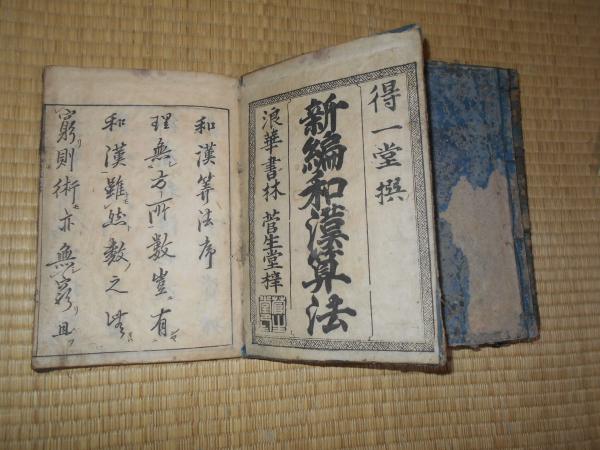 得一堂撰
新編和漢算法
浪華書林 菅生堂梓
和漢算法序
理無方所數豈有
和漢雖然數之
窮則術亦無窮且